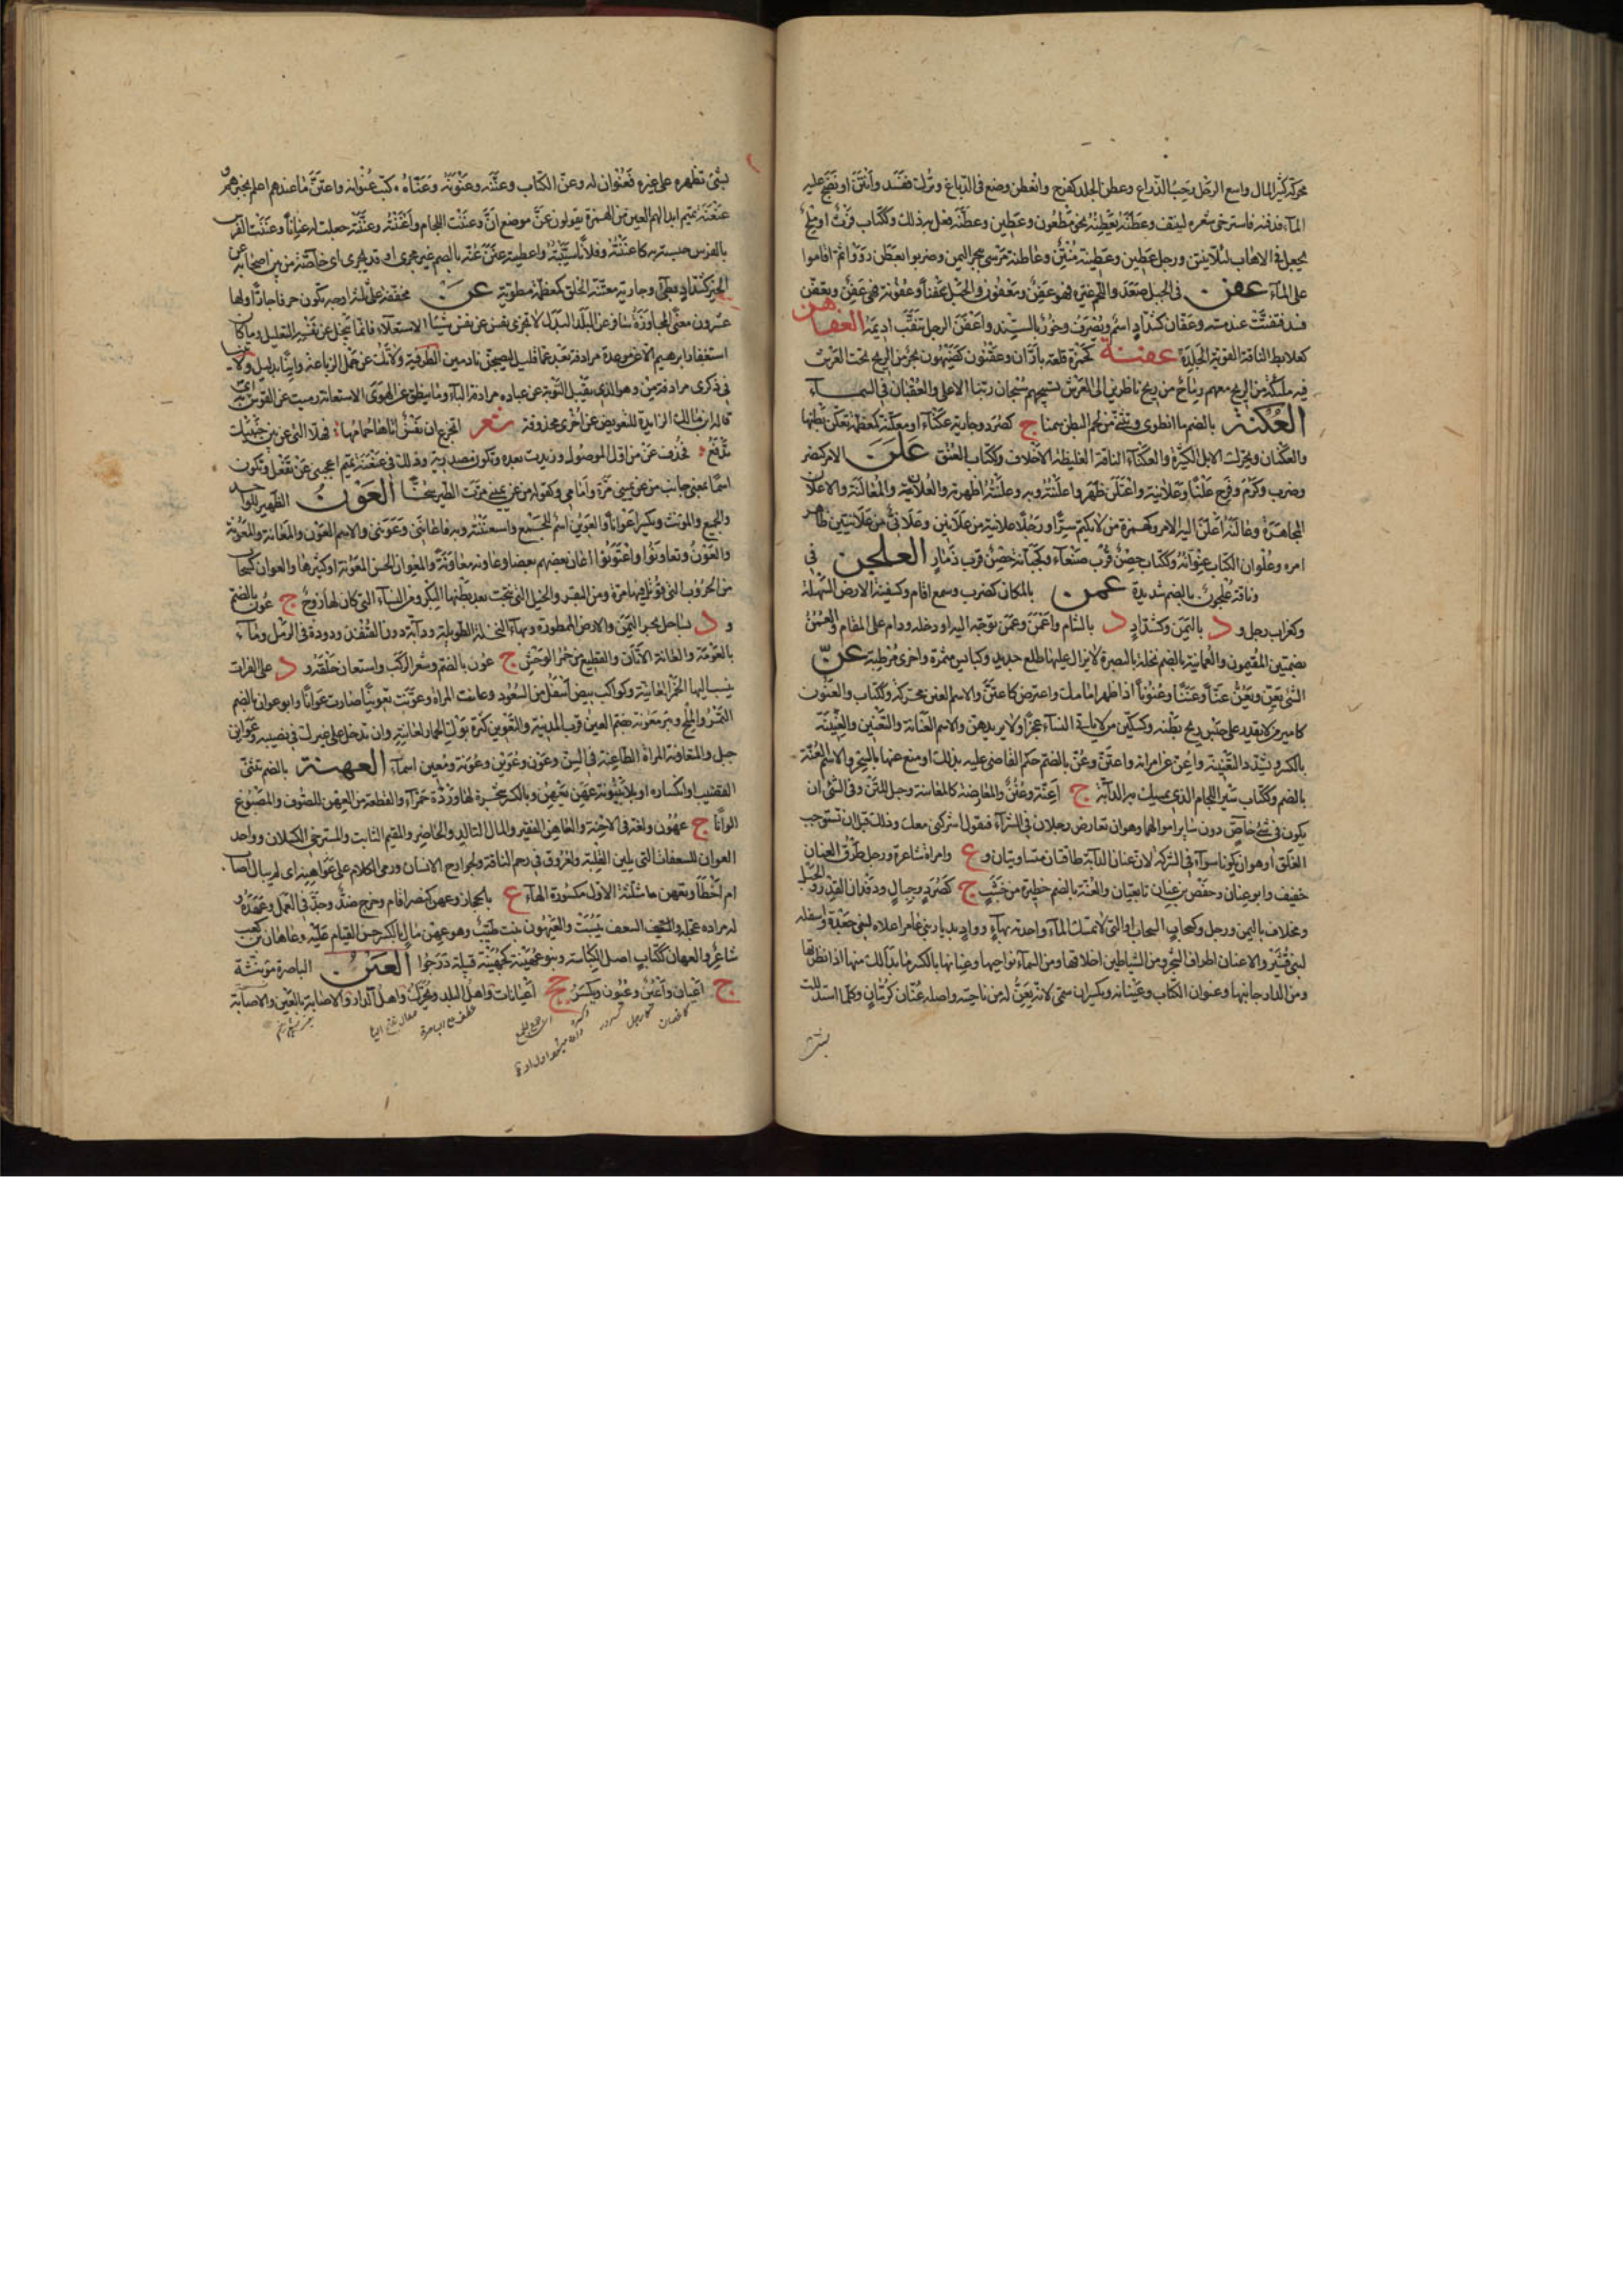 محركة كثير المال واسع الرحل رحب الذراع وعطن الجلد كفرح وانعطن وضع في الدباغ وترك ففسد وأنتن او نضح عليه
الماء فدفنه فاسترخى شعره لينتف وعطنه يعطنه فهو معطون وعطين وعطنه فعل به ذلك وككتاب فرث او ملح
يجعل في الاهاب لئلا ينتن ورجل عطين وعطينة منتن وعاطنة مرسى ببحر اليمن وضربوا بعطن رووا ثم اقاموا
على الماء عفن في الجبل صعد واللحم غيره فهو عفن ومعفون والحبل عفنا وعفونة فهو عفن وتعفن
فسد فتفتت عند مسه وعفان كشداد اسم ويصرف وخور بالسند واعفن الرجل تثقب اديمه العفاهن
كعلابط الناقة القوية الجلدة عقنة كحمزة قلعة بأران وعقنون
العكنة بالضم ما انطوى وتثنى من لحم البطن سمنا ج كصرد وجارية عكناء ومعكنة كمعظمة تعكن بطنها
والعكنان ويحرك الابل الكثيرة والعكناء الناقة الغليظة الاخلاف وككتاب العنق علن الامر كنصر
وضرب وكرم وفرح علنا وعلانية واعتلن ظهر واعلنته وبه وعلنته اظهرته والعلان والمعالنة والاعلان
المجاهرة وعالنه اعلن اليه الامر وكهمزة من لا يكتم سرا ورجل علانية من علانين وعلاني من علانيين ظاهر
امره وعلوان الكتاب عنوانه وككتاب حصن قرب صنعاء وكجبانة حصن قرب ذمار العلجن في
وناقة علجون بالضم شديدة عمن بالمكان كضرب وسمع اقام وكسفينة الارض السهلة
وكغراب رجل و د باليمن وكشداد د بالشام واعمن وعمن توجه اليه او دخله ودام على المقام والعمن
بضمتين المقيمون والعمانية بالضم نخلة بالبصرة لا يزال عليها طلع جديد وكبائس مثمرة واخرى مرطبة عن
الشئ يعن ويعن عنا وعننا وعنونا اذا ظهر امامك واعترض كاعتن والاسم العنن محركة وككتاب والعنون
كامير من لا يقدر على حبس ريح بطنه وكسكين من لا ياتي النساء عجزا او لا يريدهن والاسم العنانة والتعنين والعنينة
بالكسر وتشدد والتعنينة وعن عن امرأته واعتن وعن بالضم حكم القاضي عليه بذلك او منع عنها بالسحر والاسم العنة
بالضم وككتاب سير اللجام الذي تمسك به الدابة ج اعنة وعنن والمعارضة كالمعانة وحبل المتن وفي الشئ ان
يكون في شئ خاص دون سائر اموالهما وهو ان تعارض رجلا في الشراء فتقول اشركني معك وذلك قبل ان تستوجب
الغلق او هو ان يكونا سواء في الشركة لان عنان الدابة طاقتان متساويتان و ع وامراة شاعرة ورجل طرف العنان
خفيف وابو عنان وحفص بن عنان تابعيان والعنة بالضم حظيرة من خشب ج كصرد وجبال ودقدان القدر والحبل
ومخلاف باليمن ورجل وكسحاب السحاب او التي لا تمسك الماء واحدته بهاء وواد بديار بني عامر اعلاه لبني جعدة واسفله
لبني قشير والاعنان اطراف الشجر ومن الشياطين اخلاقها ومن السماء نواحيها وعنانها بالكسر ما بدا لك منها اذا نظرتها
ومن الدار جانبها وعنوان الكتاب وعنيانه ويكسران سمي لانه يعن له من ناحيته واصله عنان كرمان وكلما استدللت
بشئ تظهره على غيره فعنوان له وعن الكتاب وعننه وعنونه وعناه كتب عنوانه واعتن ما عندهم اعلم بخبرهم
عنعنة تميم ابدالهم العين من الهمزة يقولون عن موضع ان وعننت اللجام واعننته وعننته جعلت له عنانا وعننت الفرس
بالفرس حبسته به كاعننته وفلانا سببته واعطيته عين عنة بالضم غير مجرى وقد يجرى اى خاصة من بين اصحابه
كشداد وجارية معننة الخلق كمعظمة مطوية عن مخففة على ثلاثة اوجه تكون حرفا جارا ولها
عشرة معان المجاوزة سافر عن البلد البدل لا تجزى نفس عن نفس شيئا الاستعلاء فانما يبخل عن نفسه التعليل وما كان
استغفار ابرهيم الا عن موعدة مرادفة بعد عما قليل ليصبحن نادمين الظرفية ولا تك عن حمل الرباعة وانيا بدليل ولا تنيا
في ذكرى مرادفة من وهو الذي يقبل التوبة عن عباده مرادفة الباء وما ينطق عن الهوى الاستعانة رميت عن القوس اى به
قاله ابن مالك الزايدة للتعويض عن اخرى محذوفة شعر اتجزع ان نفس اتاها حمامها فهلا التي عن بين جنبيك
تدفع فحذفت عن من اول الموصول وزيدت بعده وتكون مصدرية وذلك في عنعنة تميم اعجبني عن تفعل وتكون
اسما بمعنى جانب من عن يميني مرة وامامي وكقوله من عن يميني مرت الطير سنحا العون الظهير للواحد
والجمع والمؤنث ويكسر اعوانا والعوين اسم للجمع واستعنته وبه فاعانني وعونني والاسم العون والمعانة والمعونة
والمعون وتعاونوا واعتونوا اعان بعضهم بعضا وعاونه معاونة والمعوان الحسن المعونة او كثيرها والعوان كسحاب
من الحروب التي قوتل فيها مرة ومن البقر والخيل التي نتجت بعد بطنها البكر ومن النساء التي كان لها زوج ج عون بالضم
و د بساحل بحر اليمن والارض الممطورة وبهاء النخلة الطويلة ودابة دون القنفذ ودودة في الرمل وماء
بالعرمة والعانة الاتان والقطيع من حمر الوحش ج عون بالضم وشعر الركب واستعان حلقه و د على الفرات
ينسب اليها الخمر العانية وكواكب بيض اسفل من السعود وعانت المراة وعونت تعوينا صارت عوانا وابو عون بالضم
التمر والملح وبئر معونة بضم العين قرب المدينة والتعوين كثرة بوك الحمار لعانته وان تدخل على غيرك في نصيبه وعوائن
جبل والمتعاونة المراة الطاعنة في السن وعون وعوين وعونة ومعين اسماء العهنة بالضم تثنى
القضيب وانكساره او بلا بينونة عهن يعهن وبالكسر شجرة لها وردة حمراء والقطعة من العهن للصوف والمصبوغ
الوانا ج عهون ولغة في الاحنة والعاهن الفقير والمال التالد والحاضر والمقيم الثابت والمسترخي الكسلان وواحد
العواهن للسعفات التي يلين القلبة ولعروق في رحم الناقة ولجوارح الانسان ورمى الكلام على عواهنه اى لم يبال اصاب
ام اخطا وتعهن مثلثة الاول مكسورة الهاء ع بالحجاز وعهن كنصر اقام وخرج ضد وجد في العمل وعهد و
له مراده عجله والسعف يبست والعيهون نبت طيب وهو عهن مال بالكسر حسن القيام عليه وعاهان بن كعب
شاعر والعهان ككتاب اصل الكباسة وبنو عهينة كجهينة قبيلة درجوا العين الباصرة مؤنثة
ج اعيان واعين وعيون ويكسر جج اعينات واهل البلد ويحرك واهل الدار والاصابة بالعين والاصابة